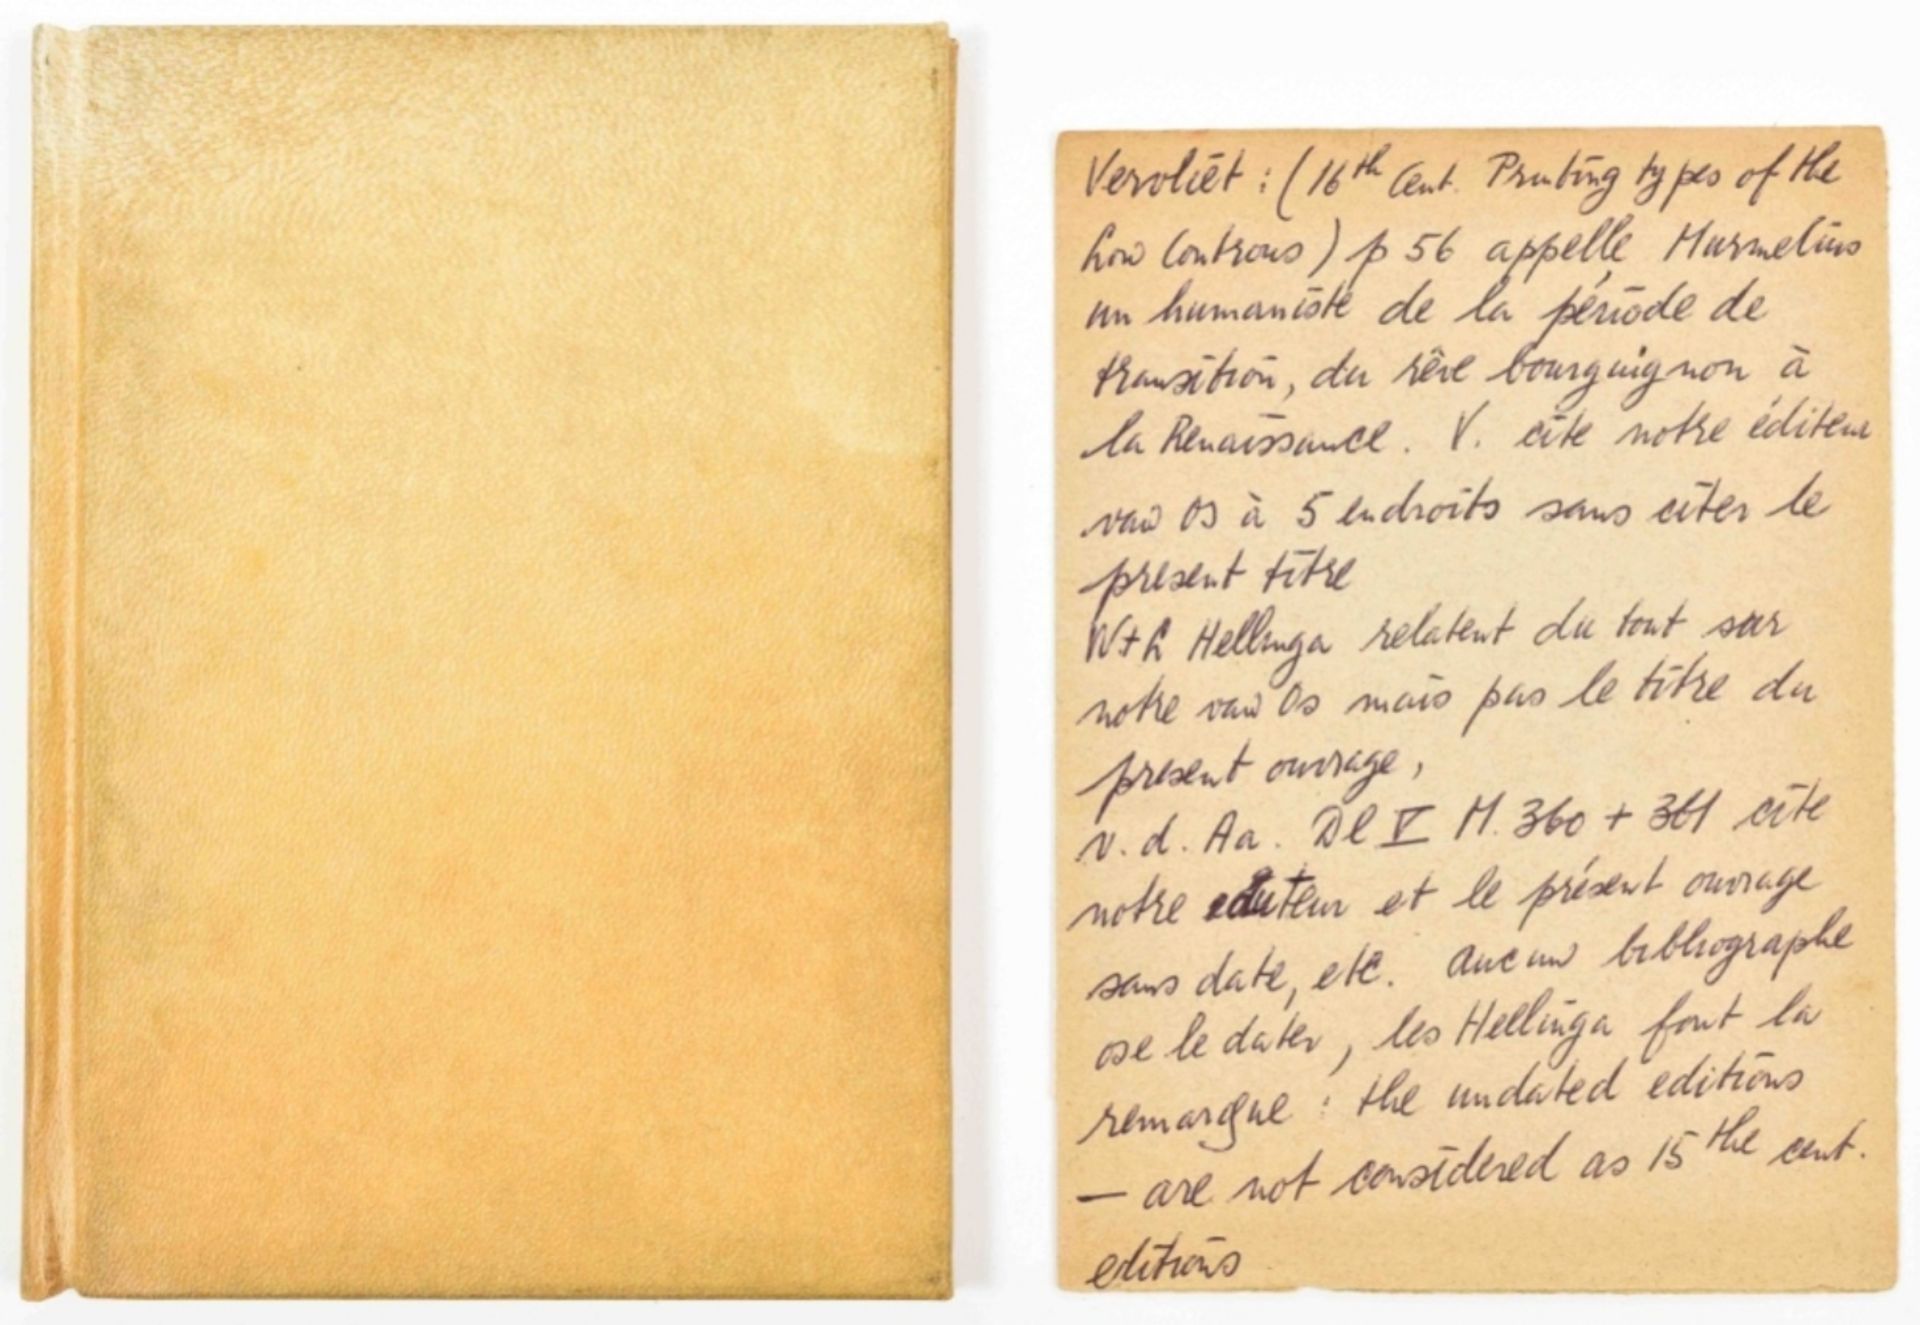 Vervliet : (16th Cent. Printing types of the
Low Controus) p 56 appelle Murmelius
un humaniste de la période de
transition, du rêve bourguignon à
la Renaissance. V. cite notre éditeur
van Os à 5 endroits sans citer le
present titre
W+L Hellinga relatent du tout sur
notre van Os mais pas le titre du
present ouvrage,
v. d. Aa. Dl V M. 360 + 361 cite
notre editeur et le présent ouvrage
sans date, etc. aucun bibliographe
ose le dater, les Hellinga font la
remarque : the undated editions
— are not considered as 15 the cent.
editions